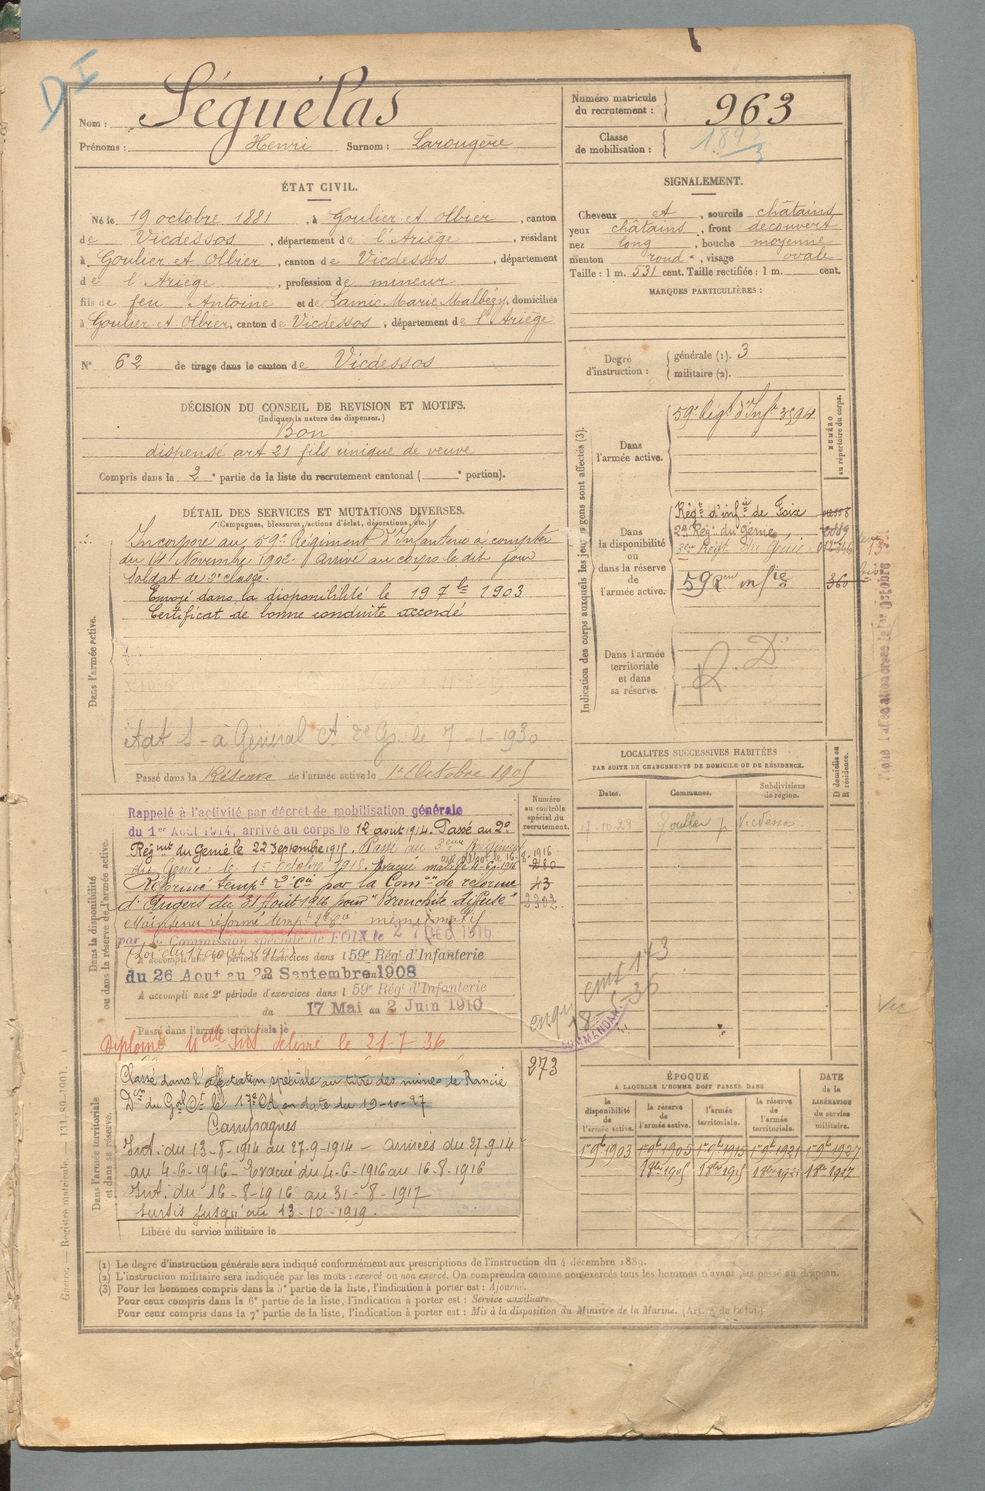 D I
Nom : Séguélas
Prénoms : Henri Surnom : Larougère
Numéro matricule du recrutement : 963
Classe de mobilisation :
ÉTAT CIVIL.
Né le 19 octobre 1881, à Goulier et Olbier, canton
de Vicdessos, département de l'Ariège, résidant
à Goulier et Olbier, canton de Vicdessos, département
de l'Ariège, profession de mineur
fils de feu Antoine et de Lamic Marie Malbézy, domiciliés
à Goulier et Olbier, canton de Vicdessos, département de l'Ariège
N° 62 de tirage dans le canton de Vicdessos
SIGNALEMENT.
Cheveux et, sourcils châtains
yeux châtains, front découvert
nez long, bouche moyenne
menton rond, visage ovale
Taille : 1 m. 531 cent. Taille rectifiée : 1 m. cent.
MARQUES PARTICULIÈRES :
Degré d'instruction : générale (1). 3
militaire (2).
DÉCISION DU CONSEIL DE REVISION ET MOTIFS.
(Indiquer la nature des dispenses.)
Bon
dispensé art 21 fils unique de veuve
Compris dans la 2e partie de la liste du recrutement cantonal ( e portion).
DÉTAIL DES SERVICES ET MUTATIONS DIVERSES.
(Campagnes, blessures, actions d'éclat, décorations, etc.)
Dans l'armée active.
Incorporé au 59e Régiment d'Infanterie à compter
du 14 Novembre 1902. Arrivé au corps le dit jour
Soldat de 2e classe.
Envoyé dans la disponibilité le 19 7bre 1903
Certificat de bonne conduite accordé
le 7-1-1930
Passé dans la Réserve de l'armée active le 1er Octobre 1905
Indication des corps auxquels les jeunes gens sont affectés (3).
NUMÉRO au répertoire du corps.
Dans l'armée active.
59e Régt d'Inft
Dans la disponibilité ou dans la réserve de l'armée active.
Régt d'infie de Foix
2e Rég. du Génie
Régt du Génie
59 R inf 360
Dans l'armée territoriale et dans sa réserve.
LOCALITÉS SUCCESSIVES HABITÉES
PAR SUITE DE CHANGEMENTS DE DOMICILE OU DE RÉSIDENCE.
Dates. Communes. Subdivisions de région. D domicile ou R résidence.
10.29 Goulier
Dans la disponibilité ou dans la réserve de l'armée active.
Numéro au contrôle spécial du recrutement.
Rappelé à l'activité par décret de mobilisation générale
du 1er Août 1914, arrivé au corps le 12 août 1914. Passé au 2e
Régmt du Génie le 22 Septembre 1915. Passé au
du Génie le 1 octobre 1915. Evacué malade
Réformé tempre 2e Cie par la Comon de réforme
d'Angers du 31 Août 1916 pour "Bronchite diffuse"
Maintenu réformé tempre même motif
par Commission spéciale de FOIX le 27 DEC 1916
43
A accompli une 1e période d'exercices dans le 59e Rég' d'Infanterie
du 26 Août au 22 Septembre 1908
A accompli une 2e période d'exercices dans le 59e Rég' d'Infanterie
du 17 Mai au 2 Juin 1910
Passé dans l'armée territoriale le
Diplôme délivré le 21-7-36
COMMANDANT
Dans l'armée territoriale et dans sa réserve.
Classé dans l'affectation spéciale au titre des mines de Rancié
Don du Gal Ct le 17e CA en date du 19-10-27
Campagnes
Int. du 13-8-1914 au 27-9-1914 - armées du 27-9-14
au 4-6-1916 - Evacué du 4-6-1916 au 16-8-1916
Int. du 16-8-1916 au 31-8-1917
sursis jusqu'au 13-10-1919.
273
Libéré du service militaire le
ÉPOQUE
À LAQUELLE L'HOMME DOIT PASSER DANS
la disponibilité de l'armée active. la réserve de l'armée active. l'armée territoriale. la réserve de l'armée territoriale. DATE de la LIBÉRATION du service militaire.
1er 9bre 1903 1er 9bre 1905 1er 9bre 1915 1er 9bre 1921 1er 9bre 1927
1 8bre 1905 1 8bre 1915 1 8bre 1921 1 8bre 1927
(1) Le degré d'instruction générale sera indiqué conformément aux prescriptions de l'instruction du 4 décembre 1889.
(2) L'instruction militaire sera indiquée par les mots : exercé ou non exercé. On comprendra comme non exercés tous les hommes n'ayant pas passé au drapeau.
(3) Pour les hommes compris dans la 5e partie de la liste, l'indication à porter est : Ajourné.
Pour ceux compris dans la 6e partie de la liste, l'indication à porter est : Service auxiliaire.
Pour ceux compris dans la 7e partie de la liste, l'indication à porter est : Mis à la disposition du Ministre de la Marine.